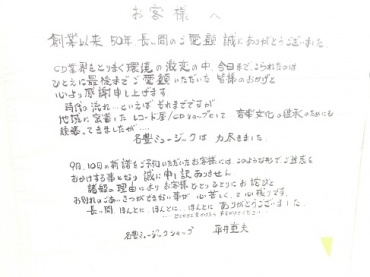 お客様へ
創業以来、50年 長い間のご愛顧 誠にありがとうございました。
CD業界をとりまく環境の激変の中、今日まで、こられたのは
ひとえに最後までご愛顧いただいた皆様のおかげと
心より感謝申し上げます
時代の流れ…といえばそれまでですが
地域に密着したレコード店/CDショップとして 音楽文化の継承のためにも
頑張ってきましたが‥‥
名豊ミュージックは 力尽きました。
9月、10月の新譜をご予約いただいたお客様には、このような形でご迷惑を
おかけする事となり 誠に申し訳ありません
諸般の理由により お客様ひとりひとりにお詫びと
お別れのごあいさつができない事が 心苦しく、心残りです。
長い間、ほんとに、ほんとに、ほんとに ありがとうございました。
名豊ミュージックショップ